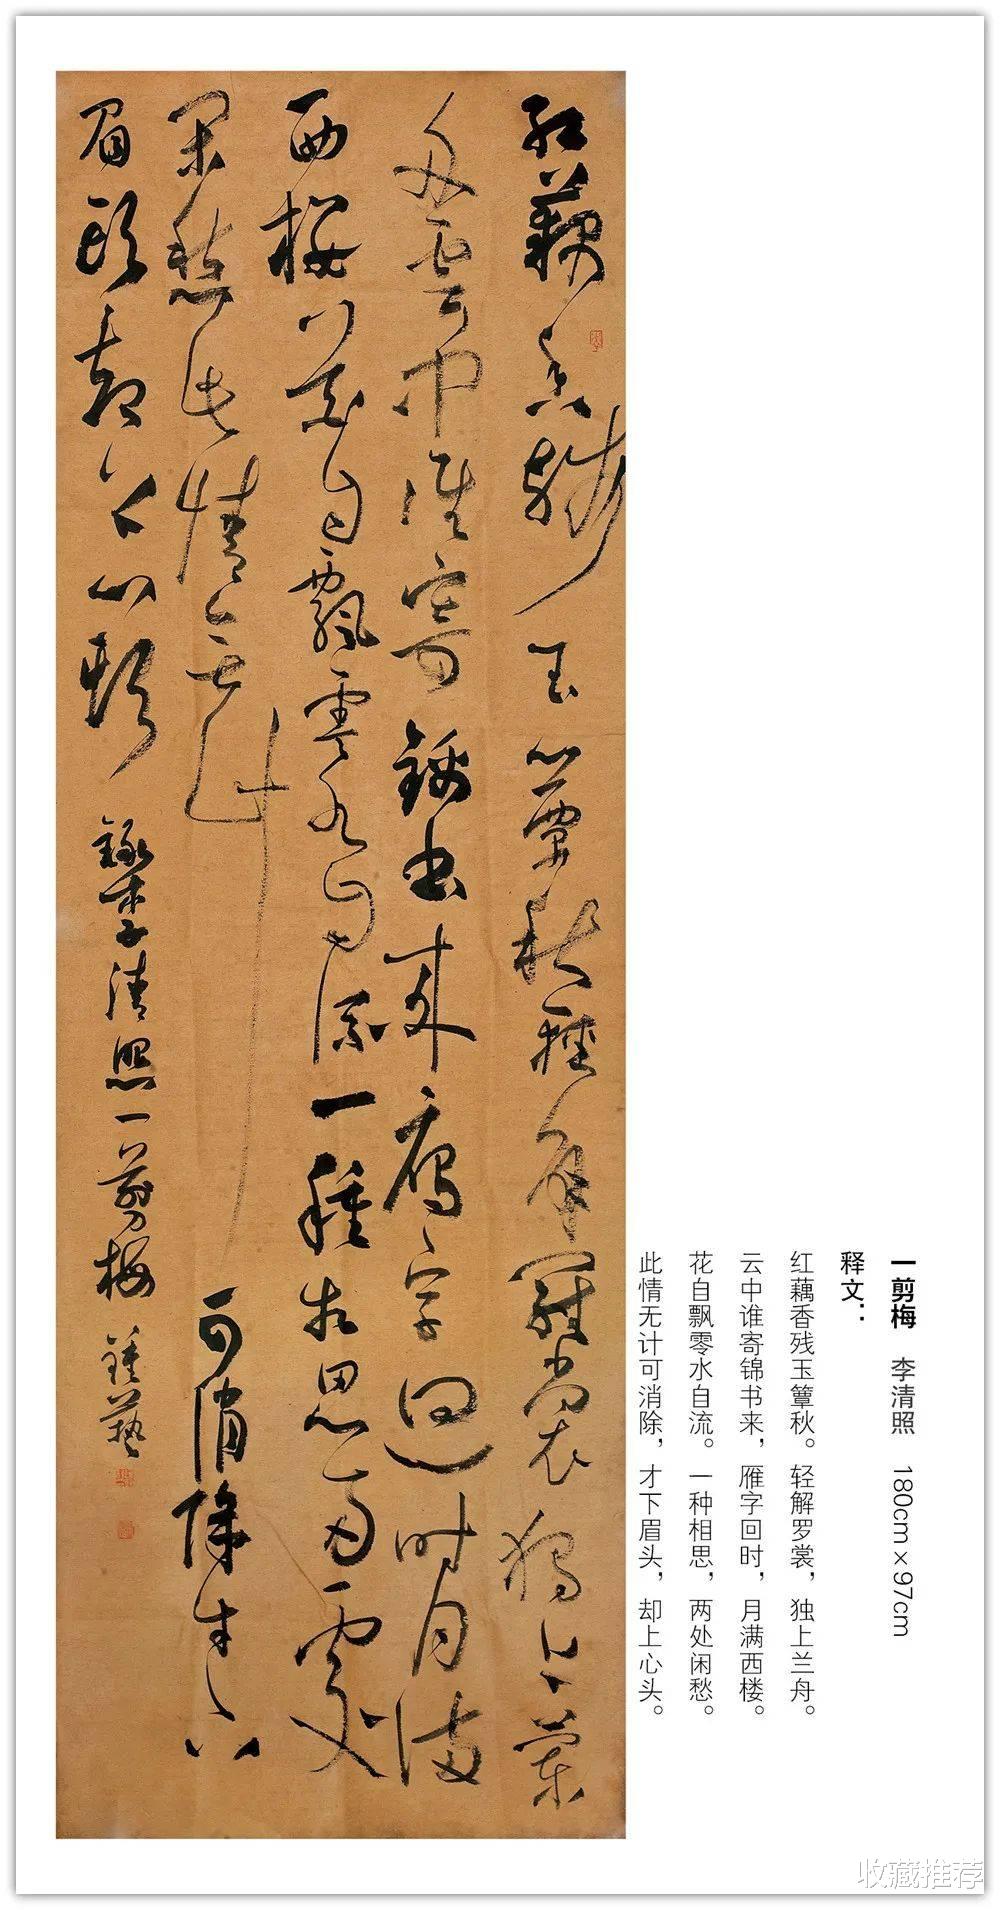 一剪梅 李清照 180cm×97cm
释文：
红藕香残玉簟秋。轻解罗裳，独上兰舟。
云中谁寄锦书来，雁字回时，月满西楼。
花自飘零水自流。一种相思，两处闲愁。
此情无计可消除，才下眉头，却上心头。
紅藕香殘玉簟秋輕解羅裳獨上蘭
舟雲中誰寄錦書來雁字迴時月滿
西樓花自飄零水自流一種相思兩處
閑愁此情無計可消除才下
眉頭卻上心頭 錄李清照一剪梅
收藏推荐